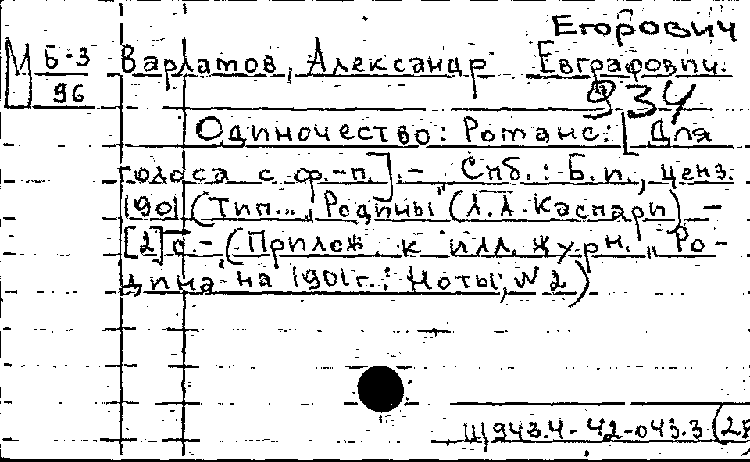 Егорович
М Б-3 Варламов, Александр Евграфович.
96
934
Одиночество: Романс: [Для
голоса с ф.-п.]. - Спб.: Б.и., ценз.
1901 (Тип... "Родины" (А.А. Каспари) -
[2] с. - (Прилож. к илл. журн. "Ро-
дина" на 1901 г.: Ноты; N 2)
Щ943.4-42-043.3(2